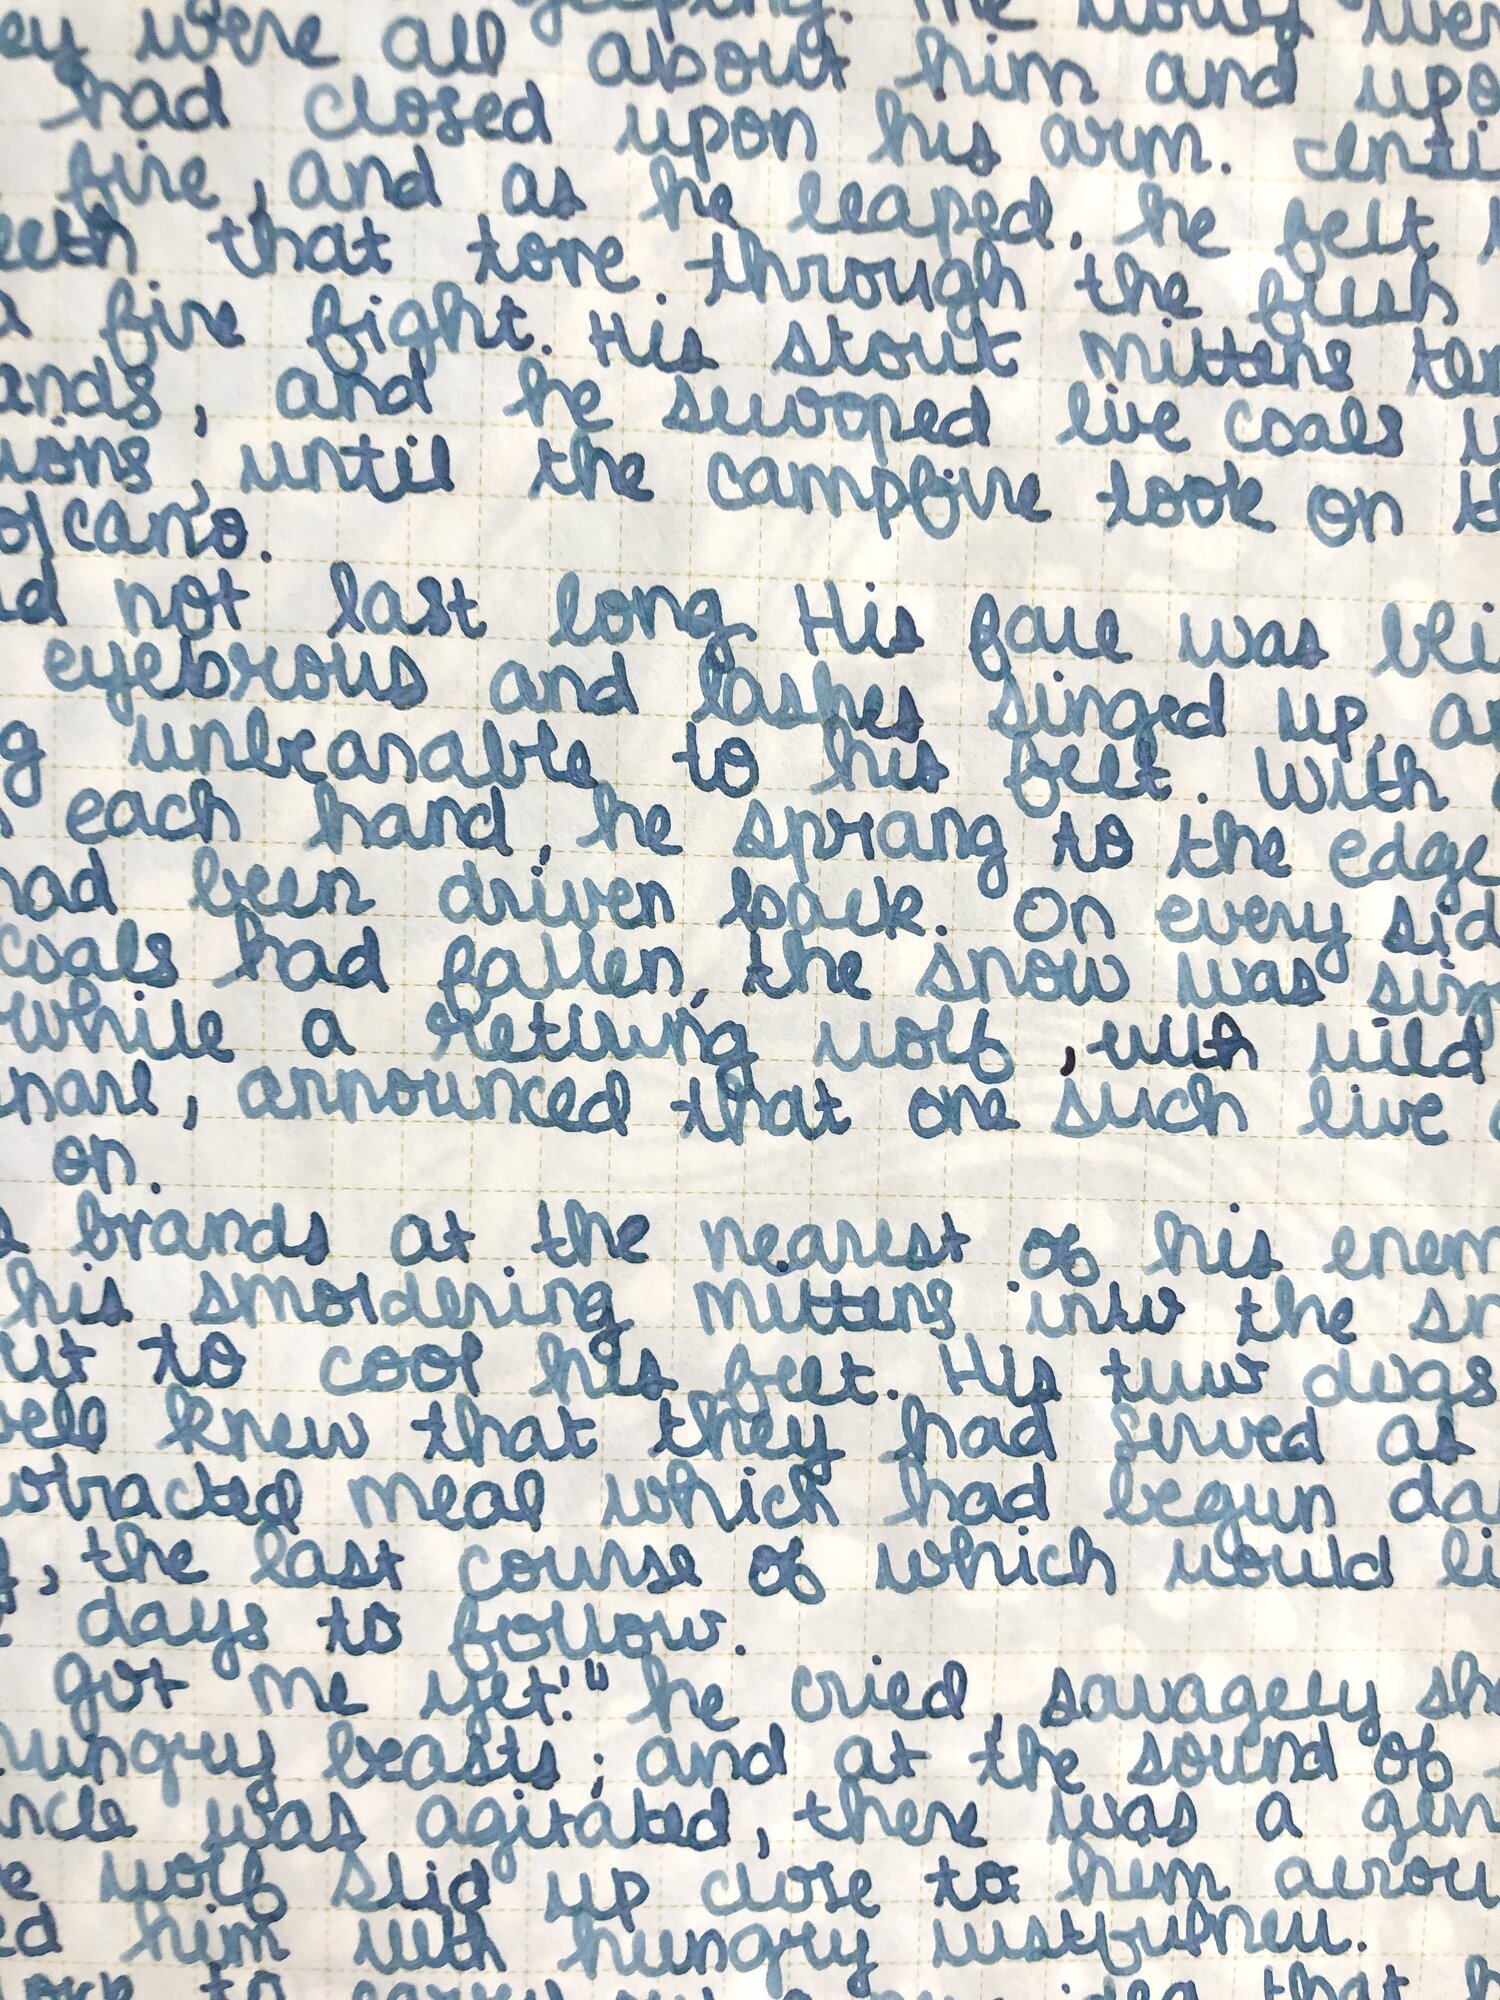 ey were all about him and upo
had closed upon his arm.
fire, and as he leaped, he felt
eeth that tore through the flesh
a fire fight. His stout mittens tem
ands, and he swooped live coals
ions, until the campfire took on th
olcano.
ld not last long His face was bli
eyebrous and lashes singed up, an
g unbearable to his feet. With
each hand, he sprang to the edge
had been driven back. On every sid
coals had fallen, the snow was sin
while a retiring wolf, with wild
narl, announced that one such live
on.
s brands at the nearest of his enem
his smoldering mittens into the sn
ut to cool his feet. His two dogs
well knew that they had served as
otracted meal which had begun da
y, the last course of which would li
days to follow.
got me yet!" he cried, savagely sh
hungry beasts; and at the sound of
ircle was agitated, there was a gen
e wolf slid up close to him acrou
ed him with hungry wistfulness.
that